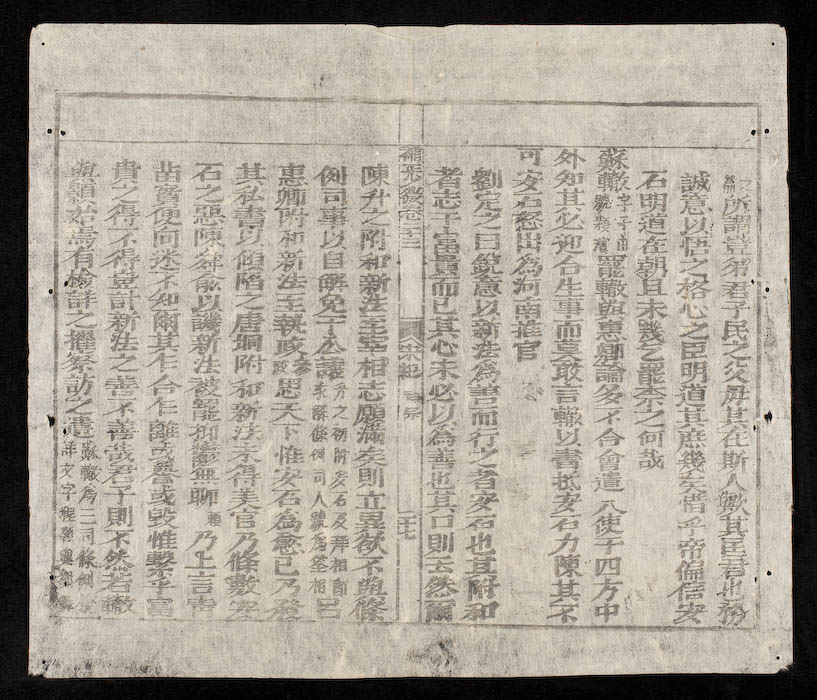 所謂豈弟君子民之父母其在斯人歟其匡君也務
誠意以悟之格心之臣明道其庶幾矣惜乎帝偏信安
石明道在朝且未幾乞罷柰之何哉
蘇轍字子由罷轍與惠卿論多不合會遣八使于四方中
外知其必迎合生事而莫敢言轍以書抵安石力陳其不
可安石怒出為河南推官
劉定之曰銳意以新法為善而行之者安石也其附和
者志乎富貴而已其心未必以為善也其口則云然爾
宋紀
二十七
陳升之附和新法至宰相志願滿矣則立異欲不與條
例司事以自解免于公議升之初附安石及拜相即求解條例司人號為筌相呂
惠卿附和新法至執政參政思天下惟安石為愈己乃發
其私書以傾陷之唐坰附和新法未得美官乃條數安
石之惡陳舜俞以譏新法被罷抑鬱無聊乃上言青
苗實便向迷不知爾其乍合乍離或譽或毀惟繫乎富
貴之得不得豈計新法之善不善哉君子則不然若轍
與顥於焉有檢詳之擢察訪之遣蘇轍為三司條例檢詳文字程顥